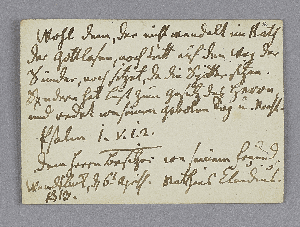 Wohl dem, der nicht wandelt im Rath
der Gottlosen, noch tritt auf den Weg der
Sünder, noch sitzet, da die Spötter sitzen.
Sondern hat Lust zum Gesetz des Herrn,
und redet von seinem Gesetze Tag u. Nacht.
Psalm 1. v. 1. 2.
dem Herrn Besitzer von seinem Freund
Wandsbeck, d. 6 April. Matthias Claudius.
1813.